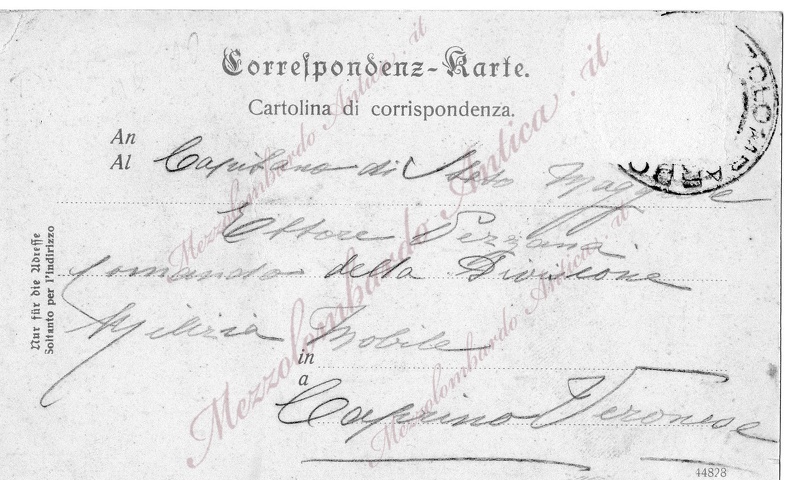 Correspondenz-Karte.
Cartolina di corrispondenza.
An
Al Capitano di Stato Maggiore
Ettore Pezzana
Comando della Divisione
Milizia Mobile
in
a
Caprino Veronese
Nur für die Adresse
Soltanto per l'Indirizzo
ZOLOMBARDO
44828
Mezzolombardo Antica.it
Mezzolombardo Antica.it
Mezzolombardo Antica.it